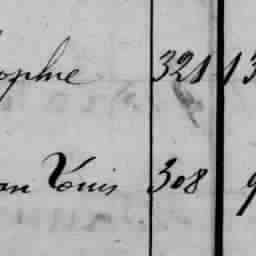 ophie 321 13
an Louis 308 9